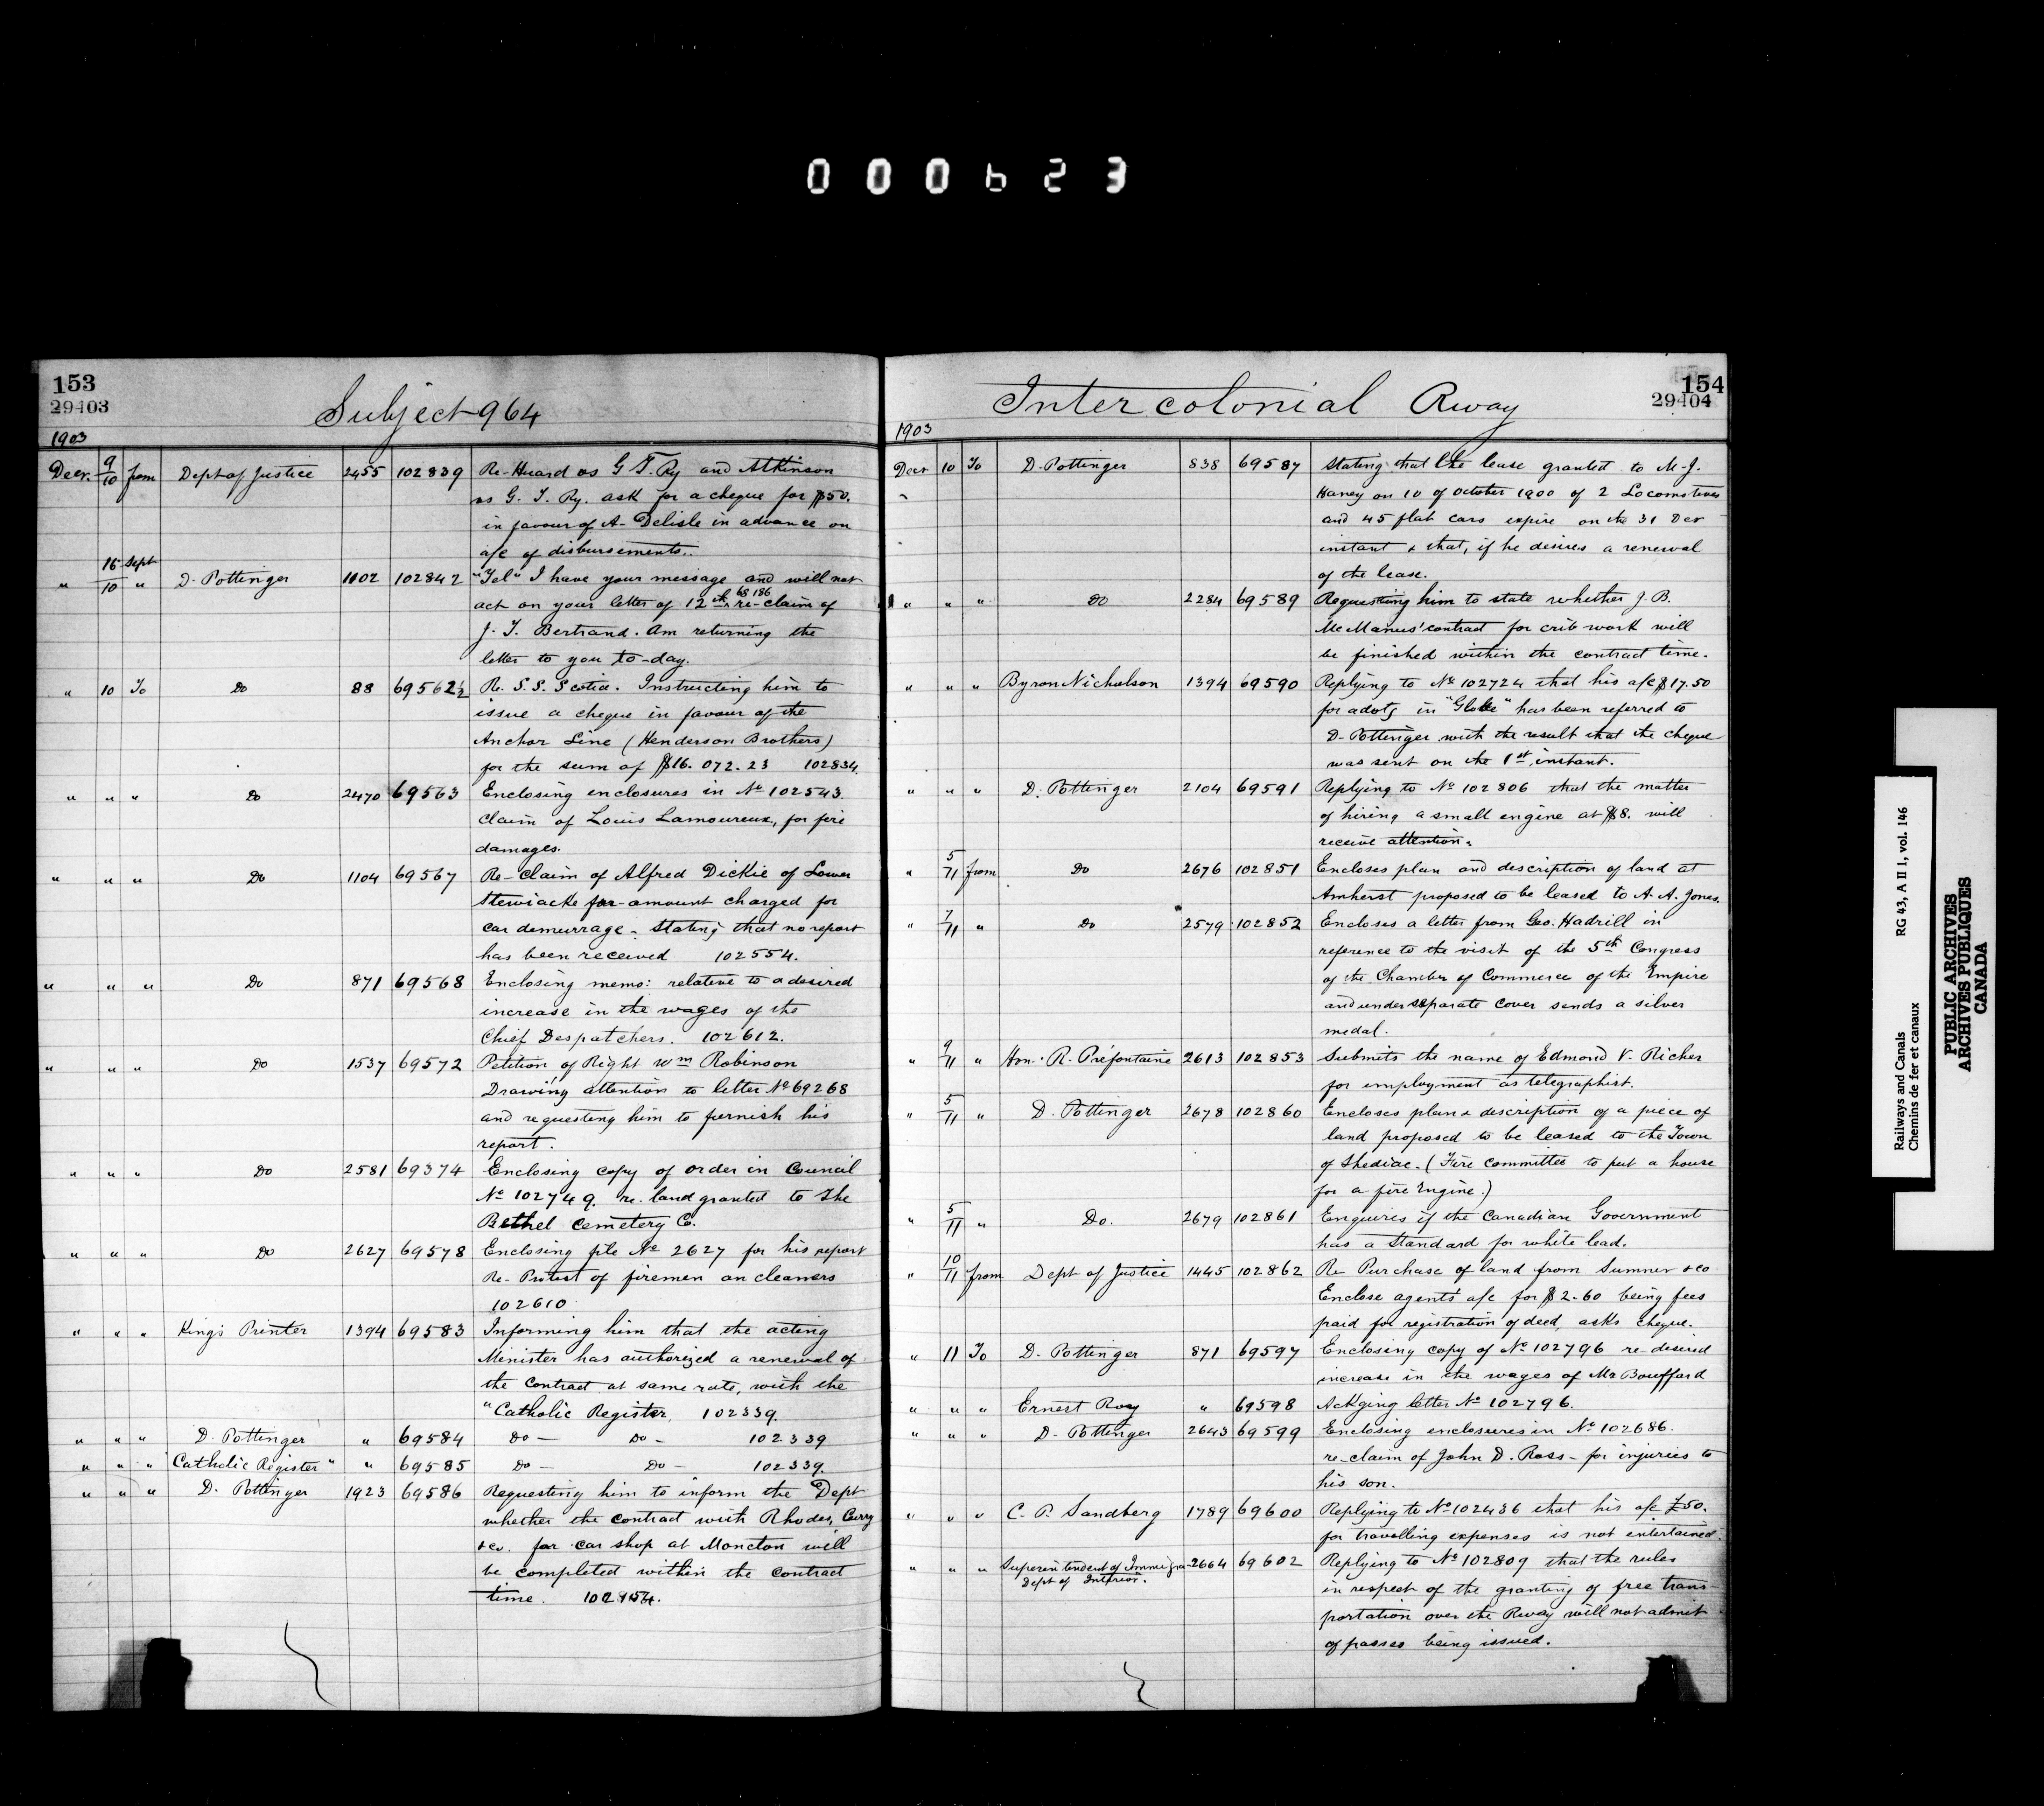 000623
153
29403
Subject 964
1903
Decr. 9/10 from Dept of Justice 2455 102839 Re-Huard vs G. T. Ry and Atkinson
vs G. T. Ry. ask for a cheque for $50.
in favour of A- Delisle in advance on
a/c of disbursements..
" 16/10 Sept " D. Pottinger 1102 102842 "Tel" I have your message and will not
act on your letter of 12th 68186 re-claim of
J. T. Bertrand. Am returning the
letter to you to-day.
" 10 To Do 88 69562½ Re. S.S. Scotia. Instructing him to
issue a cheque in favour of the
Anchor Line (Henderson Brothers)
for the sum of $16.072.23 102834.
" " " Do 2470 69563 Enclosing enclosures in No 102543
claim of Louis Lamoureux, for fire
damages.
" " " Do 1104 69567 Re-Claim of Alfred Dickie of Lower
Stewiacke for amount charged for
car demurrage - Stating that no report
has been received 102554.
" " " Do 871 69568 Enclosing memo: relative to a desired
increase in the wages of the
Chief Despatchers. 102612.
" " " Do 1537 69572 Petition of Right Wm Robinson
Drawing attention to letter No 69268
and requesting him to furnish his
report.
" " " Do 2581 69374 Enclosing copy of Order in Council
No 102749. re. land granted to the
Bethel Cemetery Co.
" " " Do 2627 69578 Enclosing file No 2627 for his report
Re- Protest of firemen on cleaners
102610
" " " King's Printer 1394 69583 Informing him that the acting
Minister has authorized a renewal of
the Contract at same rate, with the
"Catholic Register 102339.
" " " D. Pottinger " 69584 Do - Do - 102339
" " " "Catholic Register" " 69585 Do - Do - 102339.
" " " D. Pottinger 1923 69586 Requesting him to inform the Dept
whether the contract with Rhodes, Curry
&co. for car shop at Moncton will
be completed within the contract
time.
154
29404
Intercolonial Rway
1903
Decr 10 To D. Pottinger 838 69587 Stating that the lease granted to M-J.
Haney on 10 of October 1900 of 2 Locomotives
and 45 flat cars expire on the 31 Decr
instant & that, if he desires a renewal
of the lease.
" " " Do 2284 69589 Requesting him to state whether J. B.
McManus' contract for crib work will
be finished within the contract time.
" " " Byron Nicholson 1394 69590 Replying to No 102724 that his a/c $17.50
for advts in "Globe" has been referred to
D- Pottinger with the result that the cheque
was sent on the 1st instant.
" " " D. Pottinger 2104 69591 Replying to No 102806 that the matter
of hiring a small engine at $8. will
receive attention.
" 5/11 from Do 2676 102851 Encloses plan and description of land at
Amherst proposed to be leased to A. A. Jones.
" 7/11 " Do 2579 102852 Encloses a letter from Geo. Hadrill in
reference to the visit of the 5th Congress
of the Chamber of Commerce of the Empire
and under separate cover sends a silver
medal.
" 9/11 " Hon. R. Préfontaine 2613 102853 Submits the name of Edmond V. Richer
for employment as telegraphist.
" 5/11 " D. Pottinger 2678 102860 Encloses plan & description of a piece of
land proposed to be leased to the Town
of Shediac. (Fire Committee to put a house
for a fire Engine.)
" 5/11 " Do. 2679 102861 Enquires if the Canadian Government
has a Standard for white lead.
" 10/11 from Dept of Justice 1445 102862 Re Purchase of land from Sumner &co
Enclose agents' a/c for $2.60 being fees
paid for registration of deed, asks cheque.
" 11 To D. Pottinger 871 69597 Enclosing copy of No 102796 re-desired
increase in the wages of Mr Boufford
" " " Ernest Roy " 69598 Ackging letter No 102796.
" " " D- Pottinger 2643 69599 Enclosing enclosures in No 102686.
re-claim of John D. Ross - for injuries to
his son.
" " " C. P. Sandberg 1789 69600 Replying to No 102436 that his a/c £50.
for travelling expenses is not entertained.
" " " Superintendent of Immigra- 2664 69602 Replying to No 102809 that the rules
Dept of Interior.
in respect of the granting of free trans-
portation over the Rway will not admit
of passes being issued.
Railways and Canals RG 43, A II 1, vol. 146
Chemins de fer et canaux
PUBLIC ARCHIVES
ARCHIVES PUBLIQUES
CANADA